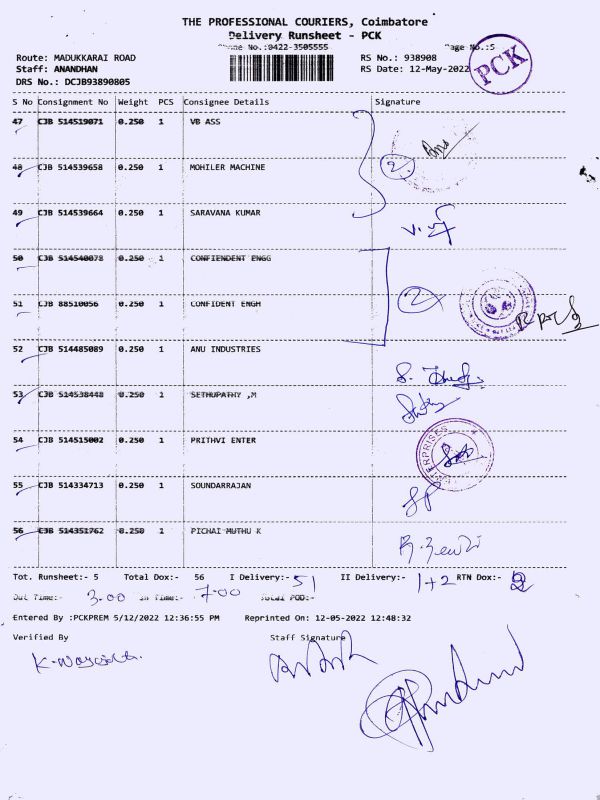 THE PROFESSIONAL COURIERS, Coimbatore
Delivery Runsheet - PCK
Phone No.:0422-3505555 Page No.:5
PCK
Route: MADUKKARAI ROAD RS No.: 938908
Staff: ANANDHAN RS Date: 12-May-2022
DRS No.: DCJB93890805
S No Consignment No Weight PCS Consignee Details Signature
47 CJB 514519071 0.250 1 VB ASS
48 CJB 514539658 0.250 1 MOHILER MACHINE 2
49 CJB 514539664 0.250 1 SARAVANA KUMAR
50 CJB 514540078 0.250 1 CONFIENDENT ENGG
51 CJB 88510056 0.250 1 CONFIDENT ENGH 2
52 CJB 514485089 0.250 1 ANU INDUSTRIES
53 CJB 514538448 0.250 1 SETHUPATHY ,M
54 CJB 514515002 0.250 1 PRITHVI ENTER
55 CJB 514334713 0.250 1 SOUNDARRAJAN
56 CJB 514351762 0.250 1 PICHAI MUTHU K
Tot. Runsheet:- 5 Total Dox:- 56 I Delivery:- 51 II Delivery:- 1+2 RTN Dox:- 2
Out Time:- 3.00 In Time:- 7.00 Total POD:-
Entered By :PCKPREM 5/12/2022 12:36:55 PM Reprinted On: 12-05-2022 12:48:32
Verified By Staff Signature